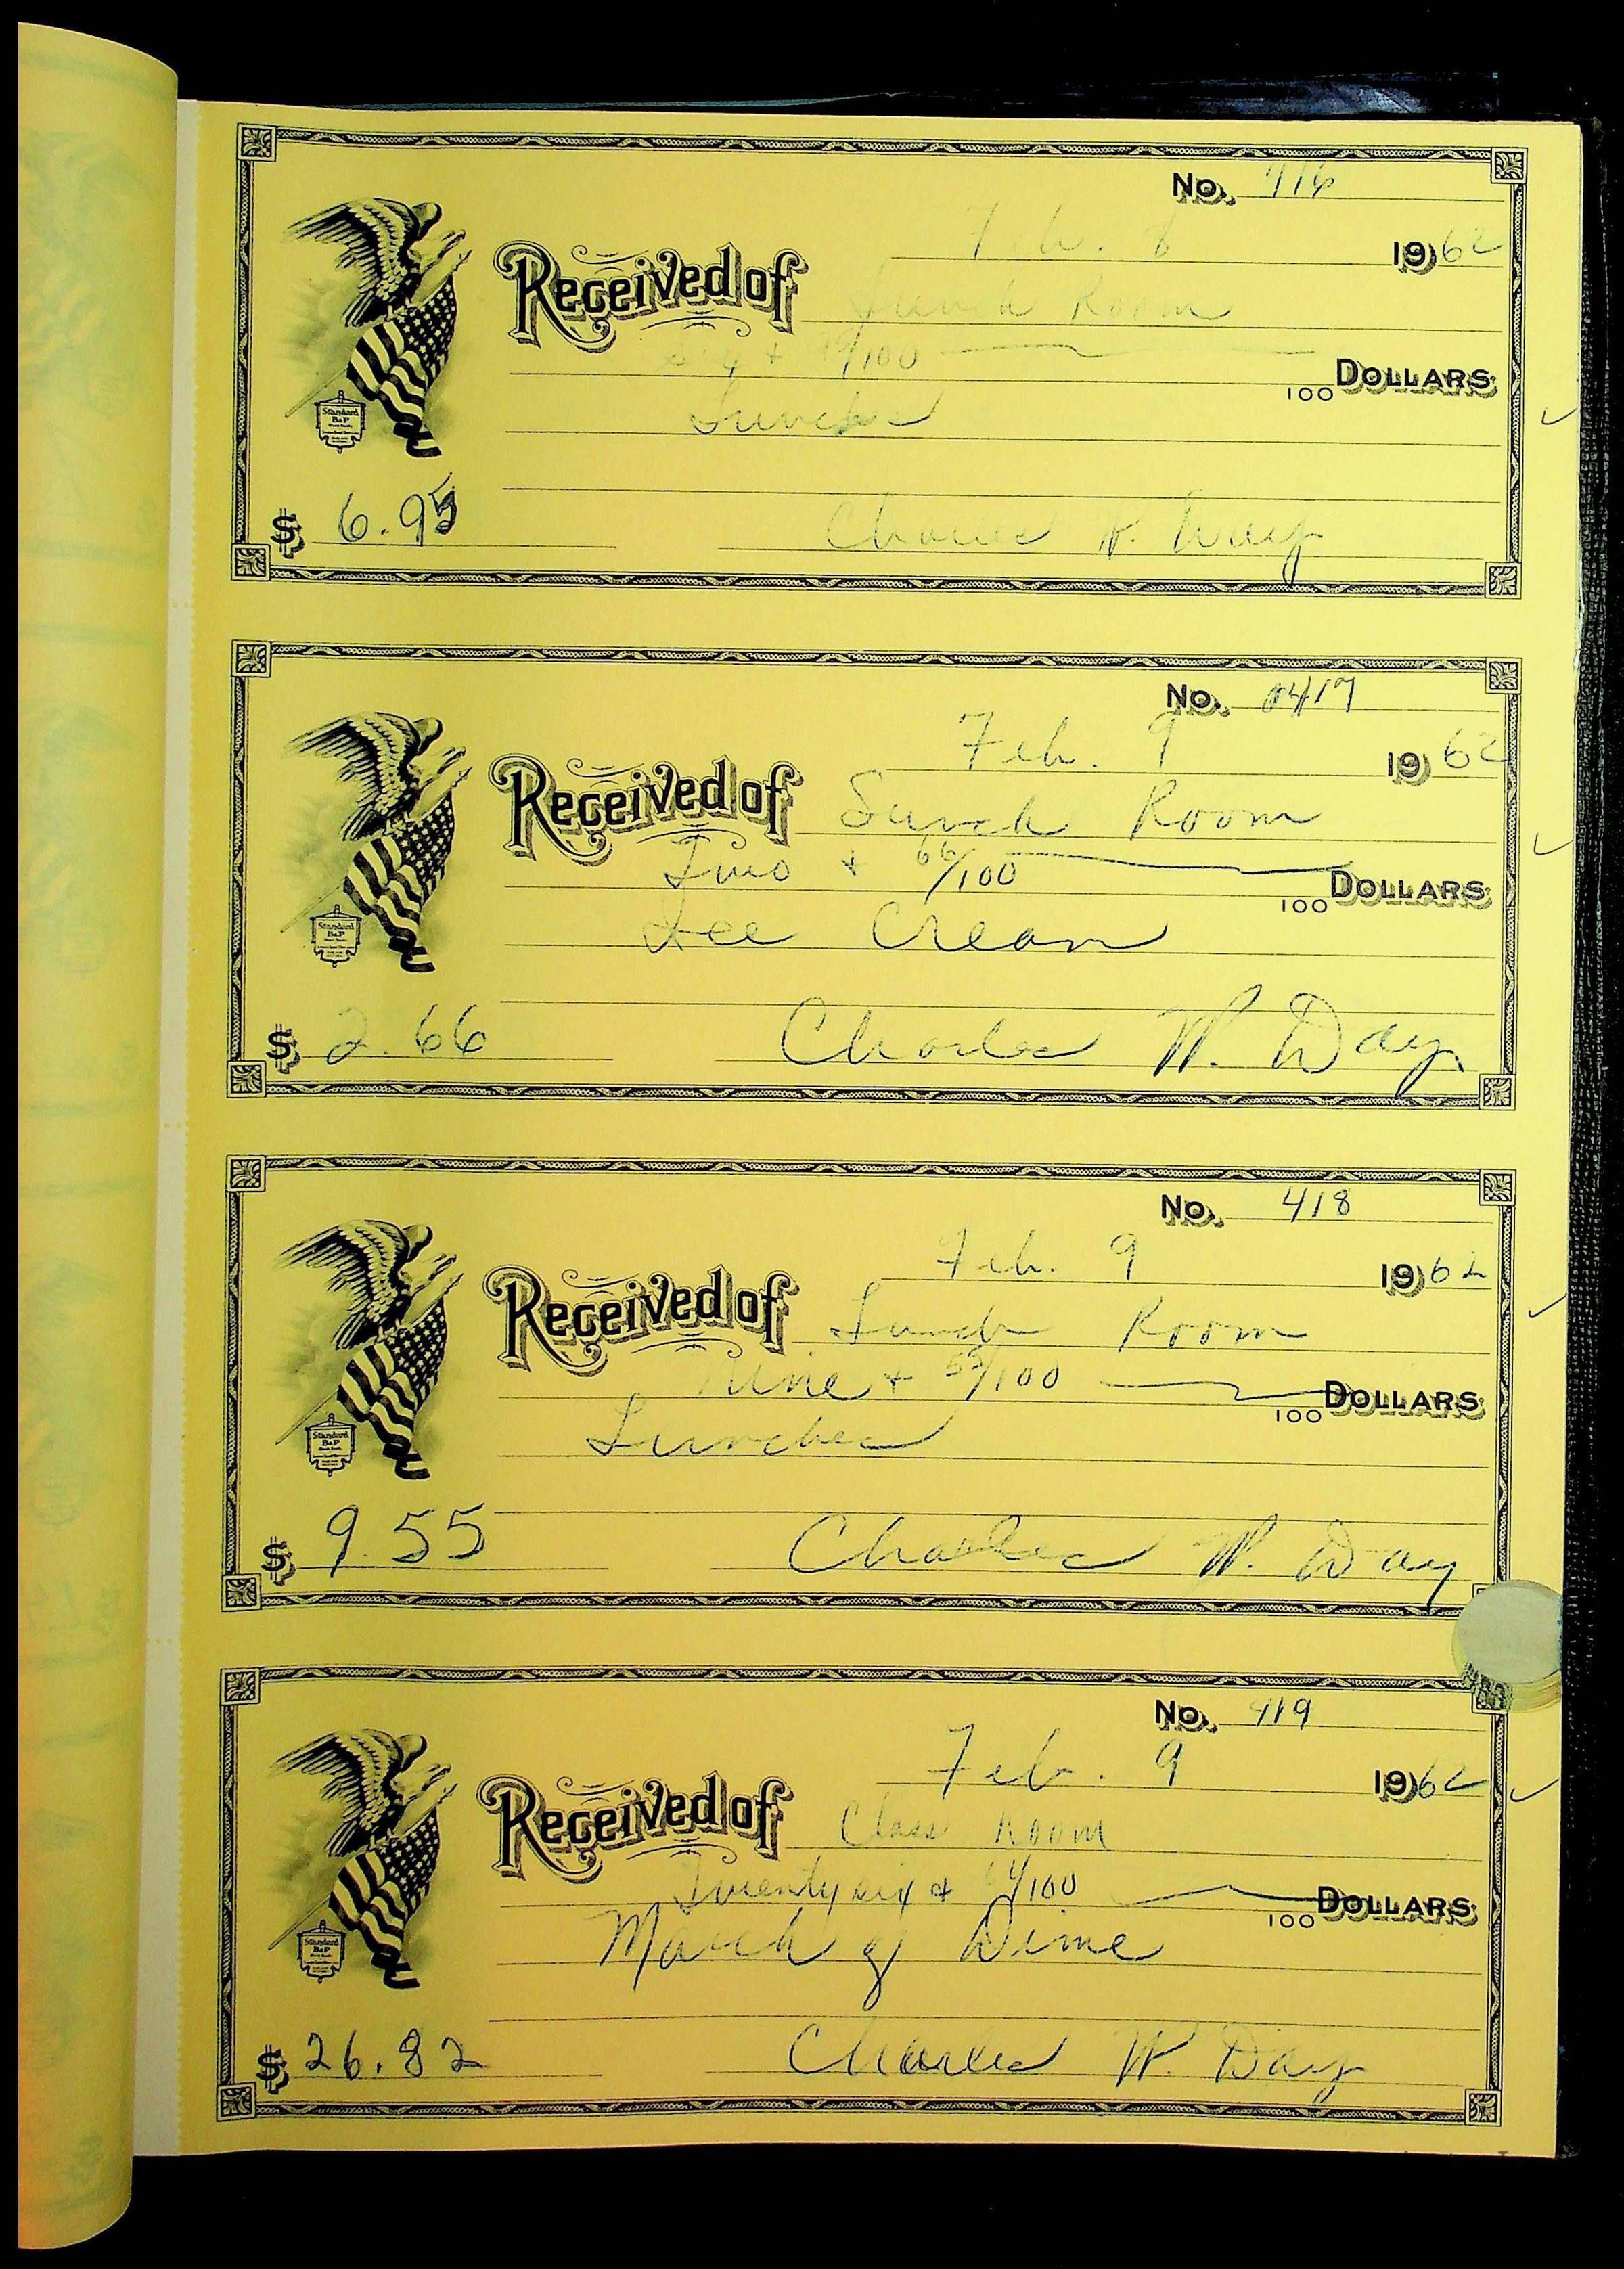 No. 416
Feb. 8 1962
Received of Lunch Room
Six + /100 Dollars
100
Lunches
Standard
B&P
$ 6.95 Charles W. Day
No. 417
Feb. 9 1962
Received of Lunch Room
Two + 66/100 Dollars
100
Ice Cream
Standard
B&P
$ 2.66 Charles W. Day
No. 418
Feb. 9 1962
Received of Lunch Room
Nine + 55/100 Dollars
100
Lunches
Standard
B&P
$ 9.55 Charles W. Day
No. 419
Feb. 9 1962
Received of Class Room
Twenty six + /100 Dollars
100
March of Dime
Standard
B&P
$ 26.82 Charles W. Day